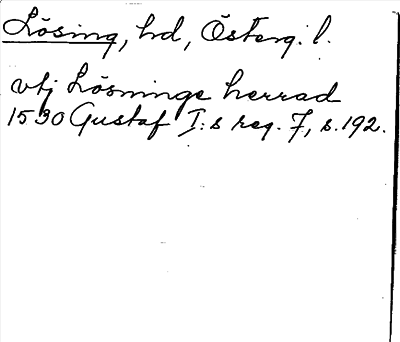 Lösing, hd, Österg. l.
vtj Lösninge herrad
1530 Gustaf I:s reg. 7, s. 192.